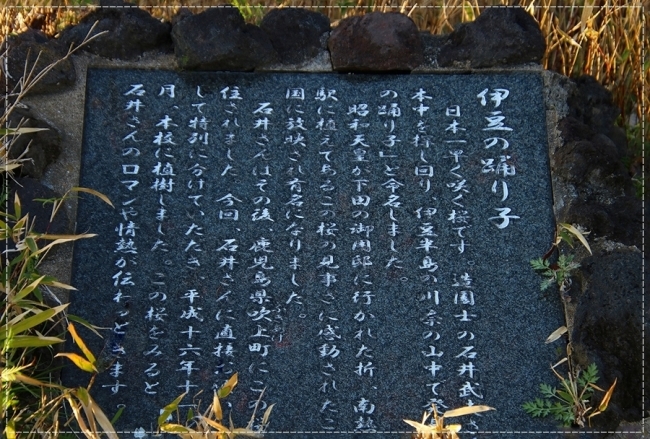 伊豆の踊り子
日本一早く咲く桜です。造園士の石井武
本中を探し回り、伊豆半島の川奈の山中で
の踊り子」と命名しました。
昭和天皇が下田の御用邸に行かれた折、南熱
駅に植えてあるこの桜の見事さに感動されたこ
国に放映され有名になりました。
石井さんはその後、鹿児島県吹上町に
住されました。今回、石井さんに直接お
して特別に分けていただき、平成十六年十
月、本校に植樹しました。この桜をみると
石井さんのロマンや情熱が伝わってきます。